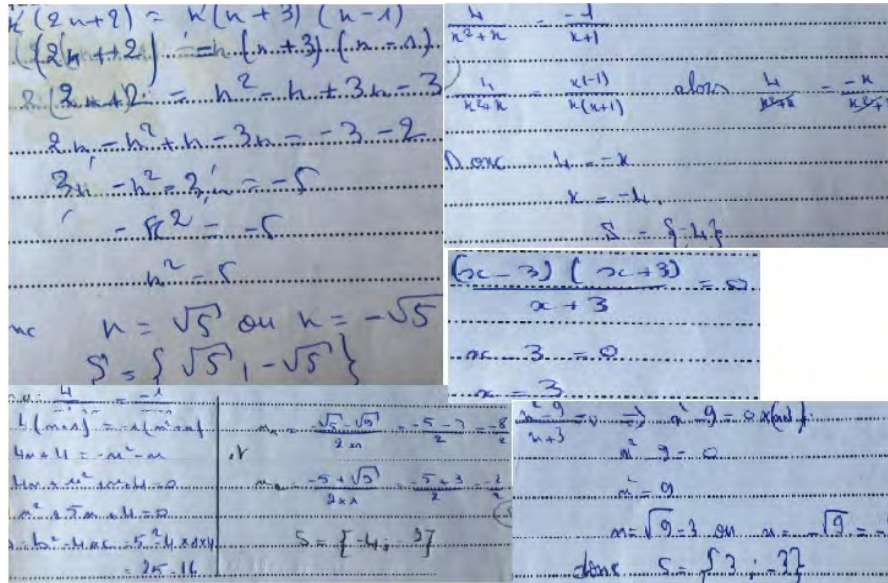 x(2x+2) = x(x+3)(x-1)
(2x+2) = (x+3)(x-1)
2x+2 = x² - x + 3x - 3
2x - x² + x - 3x = -3 - 2
3x - x² - 3x = -5
- x² = -5
x² = 5
x = √5 ou x = -√5
S = {√5, -√5}
4/(x²+x) = -1/(x+1)
4/(x²+x) = x(-1)/(x(x+1)) alors 4/(x²+x) = -x/
Donc 4 = -x
x = -4
S = {-4}
(x-3)(x+3)/(x+3) = 0
x - 3 = 0
x = 3
4(x+1) = -1(x²+x)
4x+4 = -x²-x
4x+x²+x+4 = 0
x²+5x+4 = 0
b²-4ac = 5²-4×1×4
= 25-16
= -5-3/2 = -8/2
-5+√9/2×1 = -5+3/2 = -2/2
S = {-4; -
x²-9/x+3 = 0 ⟹ x²-9 = 0×(x+
x²-9 = 0
x² = 9
x = √9 = 3 ou x = -√9 =
donc S = {3; -3}